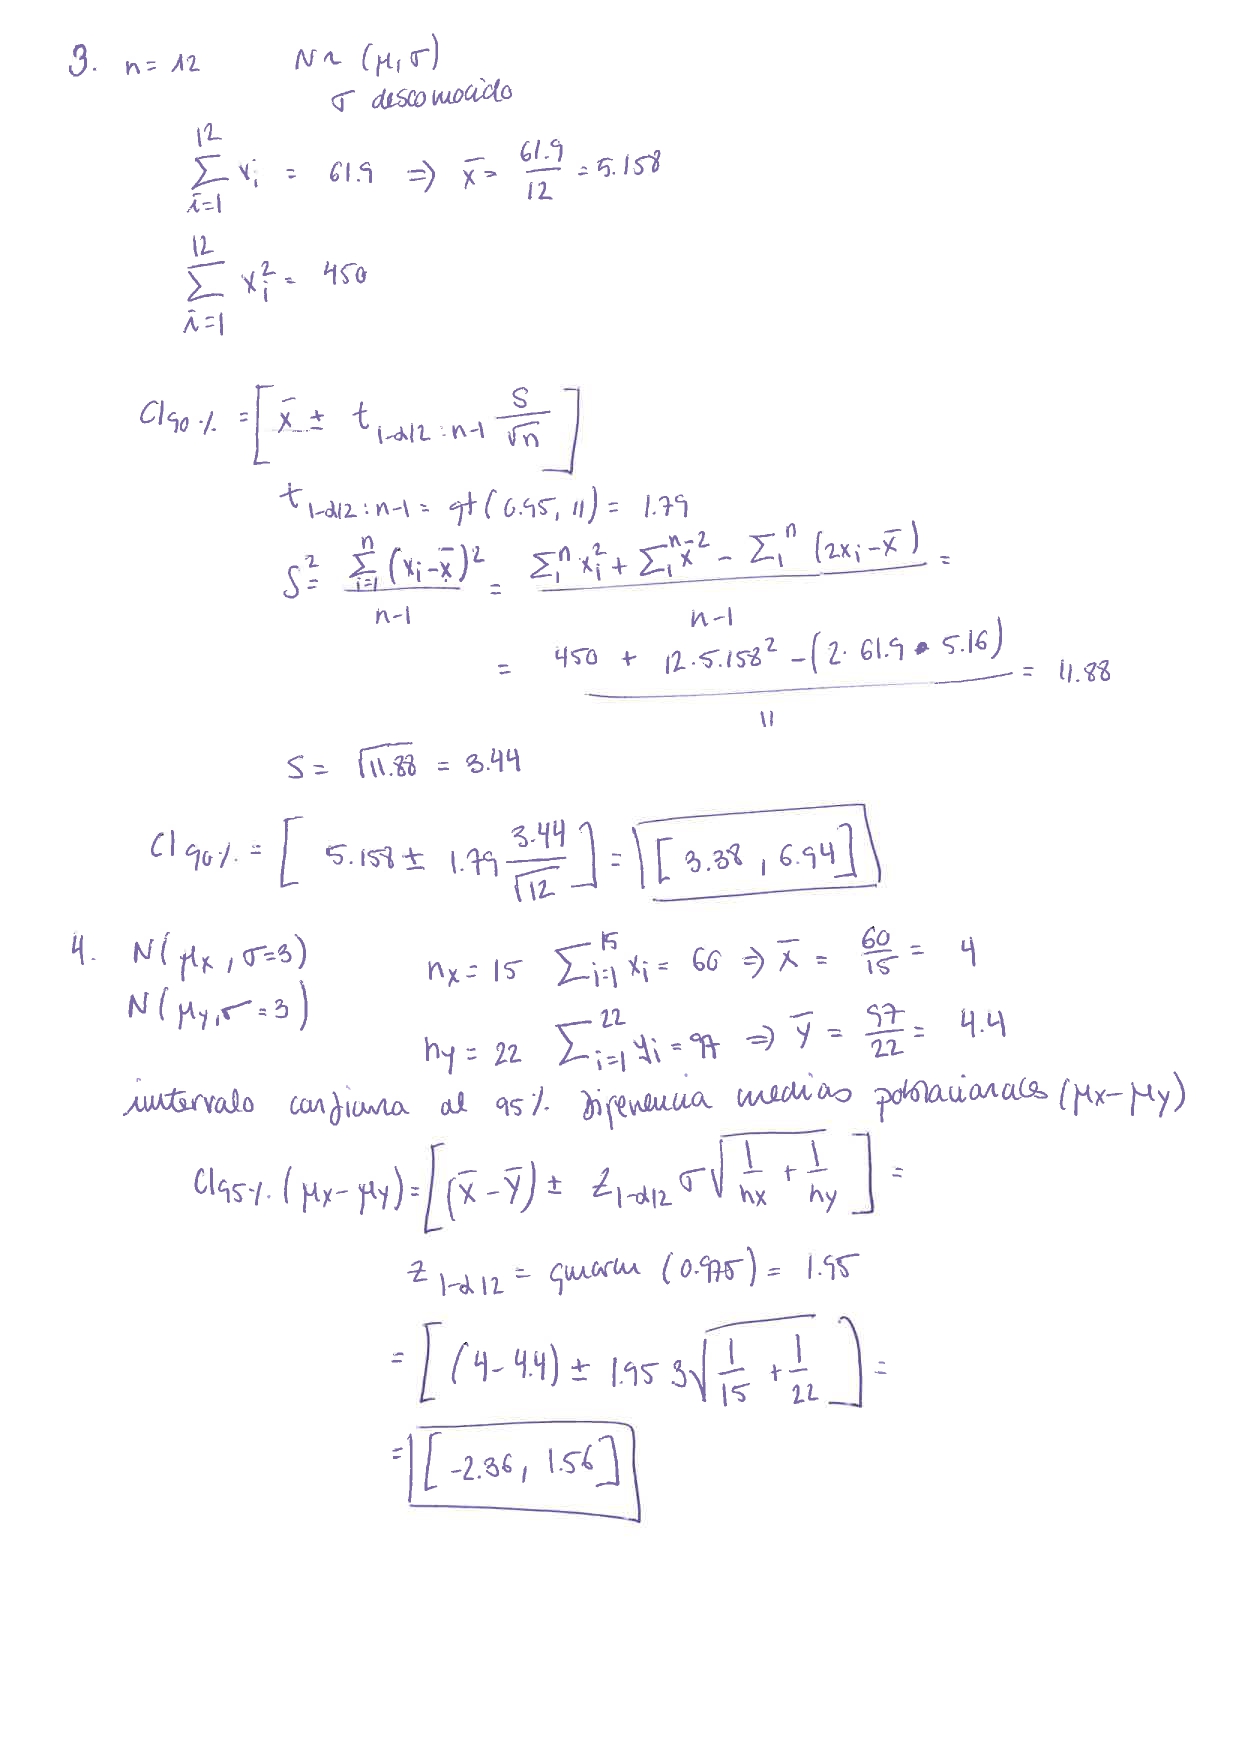 3. n = 12 N ~ (μ, σ)
σ desconocido
∑_{i=1}^{12} x_i = 61.9 ⇒ x̄ = 61.9/12 = 5.158
∑_{i=1}^{12} x_i^2 = 450
CI_{90%} = [x̄ ± t_{1-α/2 : n-1} S/√n]
t_{1-α/2 : n-1} = qt(0.95, 11) = 1.79
S^2 = ∑_{i=1}^{n} (x_i - x̄)^2 / (n-1) = (∑_1^n x_i^2 + ∑_1^n x̄^2 - ∑_1^n (2x_i - x̄)) / (n-1) =
= (450 + 12·5.158^2 - (2·61.9 · 5.16)) / 11 = 11.88
S = √11.88 = 3.44
CI_{90%} = [5.158 ± 1.79 3.44/√12] = [3.38, 6.94]
4. N(μx, σ=3) nx = 15 ∑_{i=1}^{15} x_i = 60 ⇒ x̄ = 60/15 = 4
N(μy, σ=3) ny = 22 ∑_{i=1}^{22} y_i = 97 ⇒ ȳ = 97/22 = 4.4
intervalo confianza al 95% diferencia medias poblacionales (μx - μy)
CI_{95%} (μx - μy) = [(x̄ - ȳ) ± Z_{1-α/2} σ √(1/nx + 1/ny)] =
Z_{1-α/2} = qnorm (0.975) = 1.95
= [(4 - 4.4) ± 1.95 3√(1/15 + 1/22)] =
= [-2.36, 1.56]